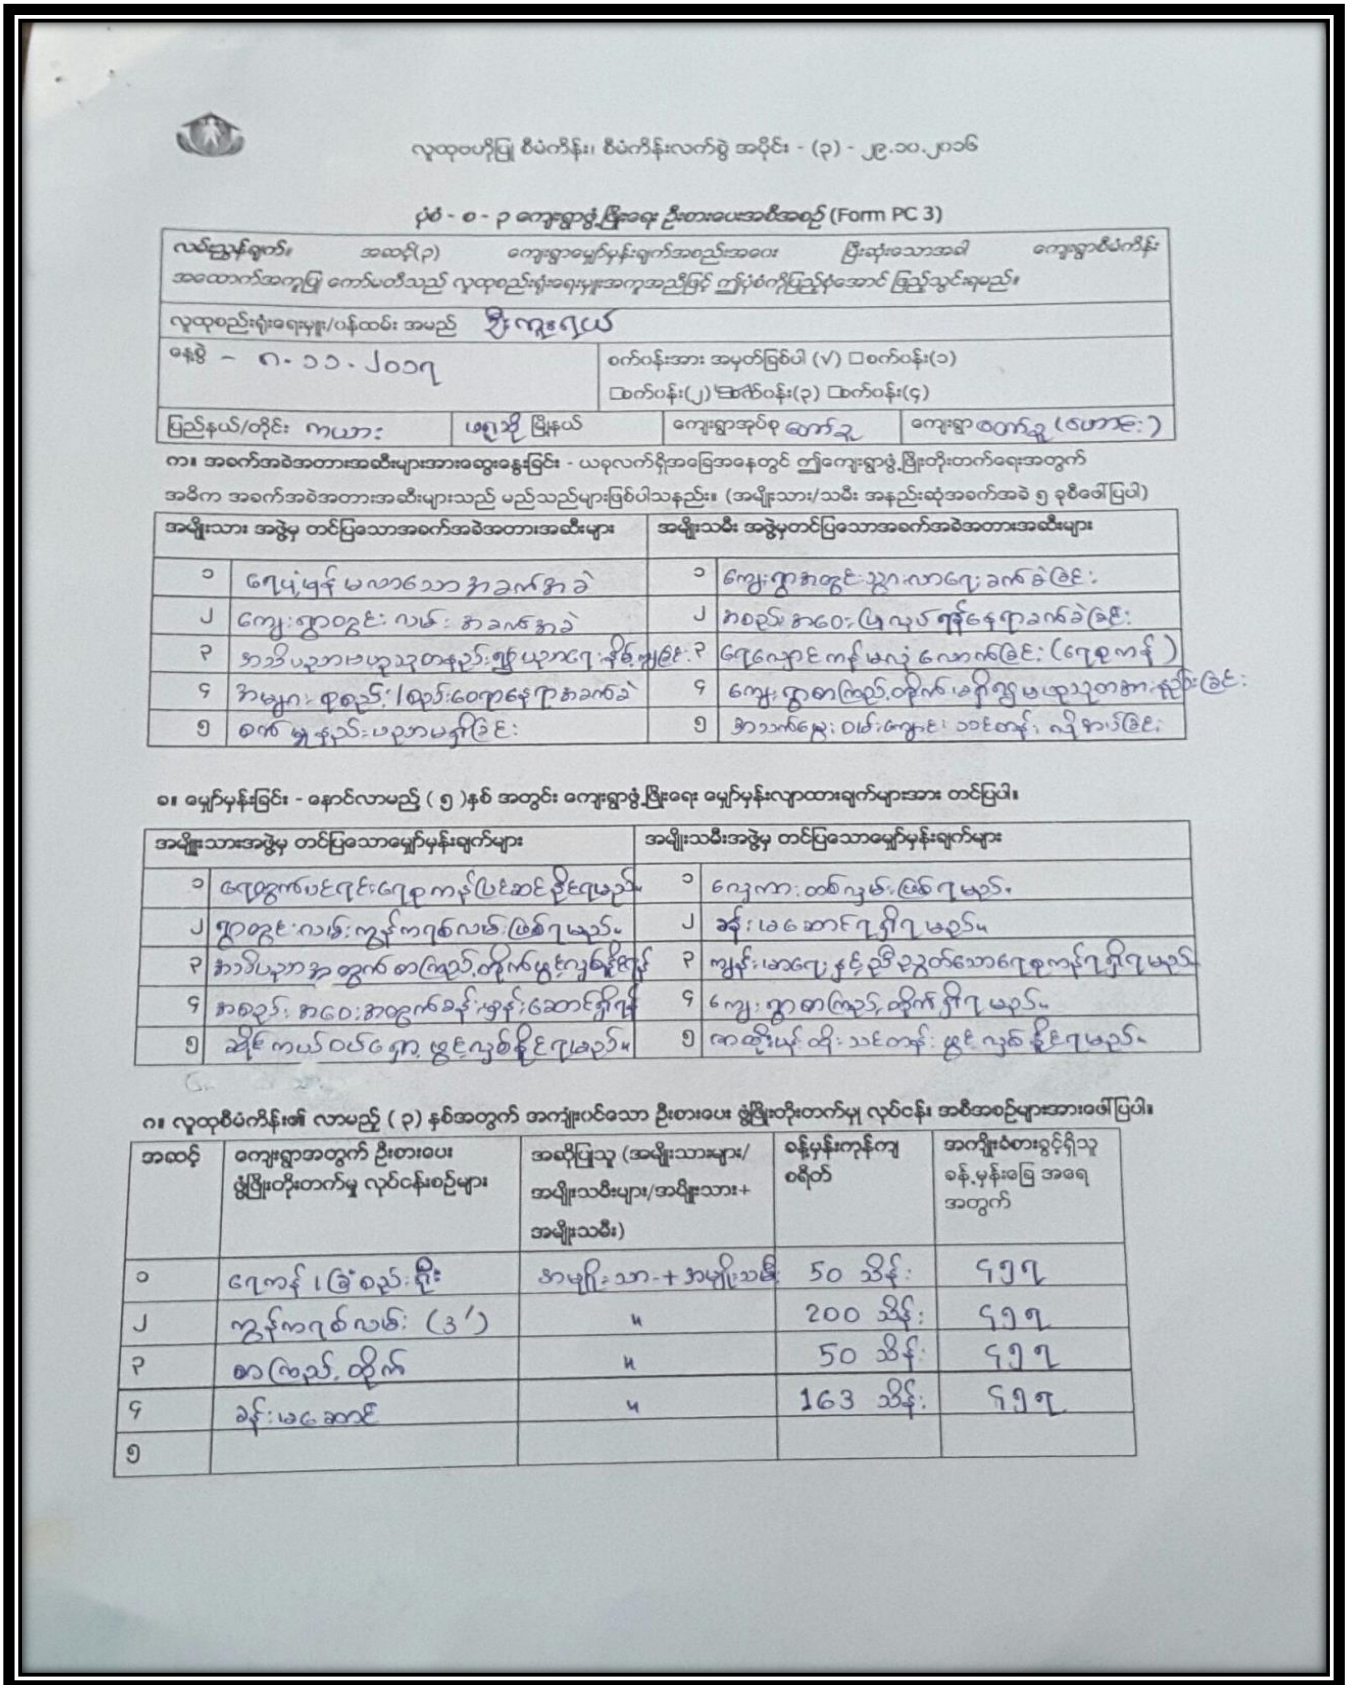 လူထုဗဟိုပြု စီမံကိန်း၊ စီမံကိန်းလက်စွဲ အပိုင်း - (၃) - ၂၉.၁၀.၂၀၁၆
ပုံစံ - စ - ၃ ကျေးရွာဖွံ့ဖြိုးရေး ဦးစားပေးအစီအစဉ် (Form PC 3)
လမ်းညွှန်ချက်။ အဆင့်(၃) ကျေးရွာမျှော်မှန်းချက်အစည်းအဝေး ပြီးဆုံးသောအခါ ကျေးရွာစီမံကိန်း
အထောက်အကူပြု ကော်မတီသည် လူထုစည်းရုံးရေးမှူးအကူအညီဖြင့် ဤပုံစံကိုပြည့်စုံအောင် ဖြည့်သွင်းရမည်။
လူထုစည်းရုံးရေးမှူး/ဝန်ထမ်း အမည် ဦးကူးရယ်
နေ့စွဲ - ၈.၁၁.၂၀၁၇ စက်ဝန်းအား အမှတ်ခြစ်ပါ (√) □စက်ဝန်း(၁)
□စက်ဝန်း(၂) □စက်ဝန်း(၃) □စက်ဝန်း(၄)
ပြည်နယ်/တိုင်း ကယား ဖရူဆို မြို့နယ် ကျေးရွာအုပ်စု တော်ဥူ ကျေးရွာ တော်ဥူ (ဟောင်း)
က။ အခက်အခဲအတားအဆီးများအားဆွေးနွေးခြင်း - ယခုလက်ရှိအခြေအနေတွင် ဤကျေးရွာဖွံ့ဖြိုးတိုးတက်ရေးအတွက်
အဓိက အခက်အခဲအတားအဆီးများသည် မည်သည်များဖြစ်ပါသနည်း။ (အမျိုးသား/သမီး အနည်းဆုံးအခက်အခဲ ၅ ခုစီဖေါ်ပြပါ)
အမျိုးသား အဖွဲ့မှ တင်ပြသောအခက်အခဲအတားအဆီးများ အမျိုးသမီး အဖွဲ့မှတင်ပြသောအခက်အခဲအတားအဆီးများ
၁ ရေပုံမှန်မလာသောအခက်အခဲ ၁ ကျေးရွာအတွင်းသွားလာရေးခက်ခဲခြင်း
၂ ကျေးရွာတွင်းလမ်းအခက်အခဲ ၂ အစည်းအဝေးပြုလုပ်ရန်နေရာခက်ခဲခြင်း
၃ အသိပညာဗဟုသုတနည်း၍ပညာရေးနိမ့်ကျခြင်း ၃ ရေလှောင်ကန်မလုံလောက်ခြင်း (ရေစုကန်)
၄ အများစုစည်း/စည်းဝေးရာနေရာအခက်ခဲ ၄ ကျေးရွာစာကြည့်တိုက်မရှိ၍ဗဟုသုတအားနည်းခြင်း
၅ စက်မှုနည်းပညာမရှိခြင်း ၅ အသက်မွေးဝမ်းကျောင်းသင်တန်းလိုအပ်ခြင်း
ခ။ မျှော်မှန်းခြင်း - နောင်လာမည့် ( ၅ )နှစ် အတွင်း ကျေးရွာဖွံ့ဖြိုးရေး မျှော်မှန်းလျာထားချက်များအား တင်ပြပါ။
အမျိုးသားအဖွဲ့မှ တင်ပြသောမျှော်မှန်းချက်များ အမျိုးသမီးအဖွဲ့မှ တင်ပြသောမျှော်မှန်းချက်များ
၁ ရေထွက်ပင်ရင်းရေစုကန်ပြင်ဆင်နိုင်ရမည်။ ၁ လှေကားတစ်လှမ်းဖြစ်ရမည်။
၂ ရွာတွင်းလမ်းကွန်ကရစ်လမ်းဖြစ်ရမည်။ ၂ ခန်းမဆောင်ရရှိရမည်။
၃ အသိပညာအတွက်စာကြည့်တိုက်ဖွင့်လှစ်နိုင်ရန် ၃ ကျန်းမာရေးနှင့်ညီညွတ်သောရေစုကန်ရရှိရမည်
၄ အစည်းအဝေးအတွက်ခန်းမှန်းဆောင်ရှိရန် ၄ ကျေးရွာစာကြည့်တိုက်ရှိရမည်။
၅ ဆိုင်ကယ်ဝပ်ရှော့ဖွင့်လှစ်နိုင်ရမည်။ ၅ စာထိုးပန်းထိုးသင်တန်းဖွင့်လှစ်နိုင်ရမည်။
ဂ။ လူထုစီမံကိန်း၏ လာမည့် ( ၃ ) နှစ်အတွက် အကျုံးဝင်သော ဦးစားပေး ဖွံ့ဖြိုးတိုးတက်မှု လုပ်ငန်း အစီအစဉ်များအားဖေါ်ပြပါ။
အဆင့် ကျေးရွာအတွက် ဦးစားပေး ဖွံ့ဖြိုးတိုးတက်မှု လုပ်ငန်းစဉ်များ အဆိုပြုသူ (အမျိုးသားများ/ အမျိုးသမီးများ/အမျိုးသား+ အမျိုးသမီး) ခန့်မှန်းကုန်ကျ စရိတ် အကျိုးခံစားခွင့်ရှိသူ ခန့်မှန်းခြေ အရေ အတွက်
၁ ရေကန်၊ခြံစည်းရိုး အမျိုးသား+အမျိုးသမီး 50 သိန်း ၄၅၇
၂ ကွန်ကရစ်လမ်း (3') " 200 သိန်း ၄၅၇
၃ စာကြည့်တိုက် " 50 သိန်း ၄၅၇
၄ ခန်းမဆောင် " 163 သိန်း ၄၅၇
၅